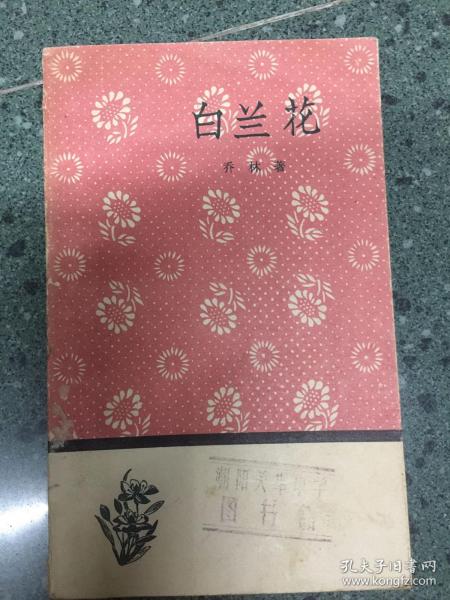 白兰花
乔林著
图书馆
孔夫子旧书网
www.kongfz.com